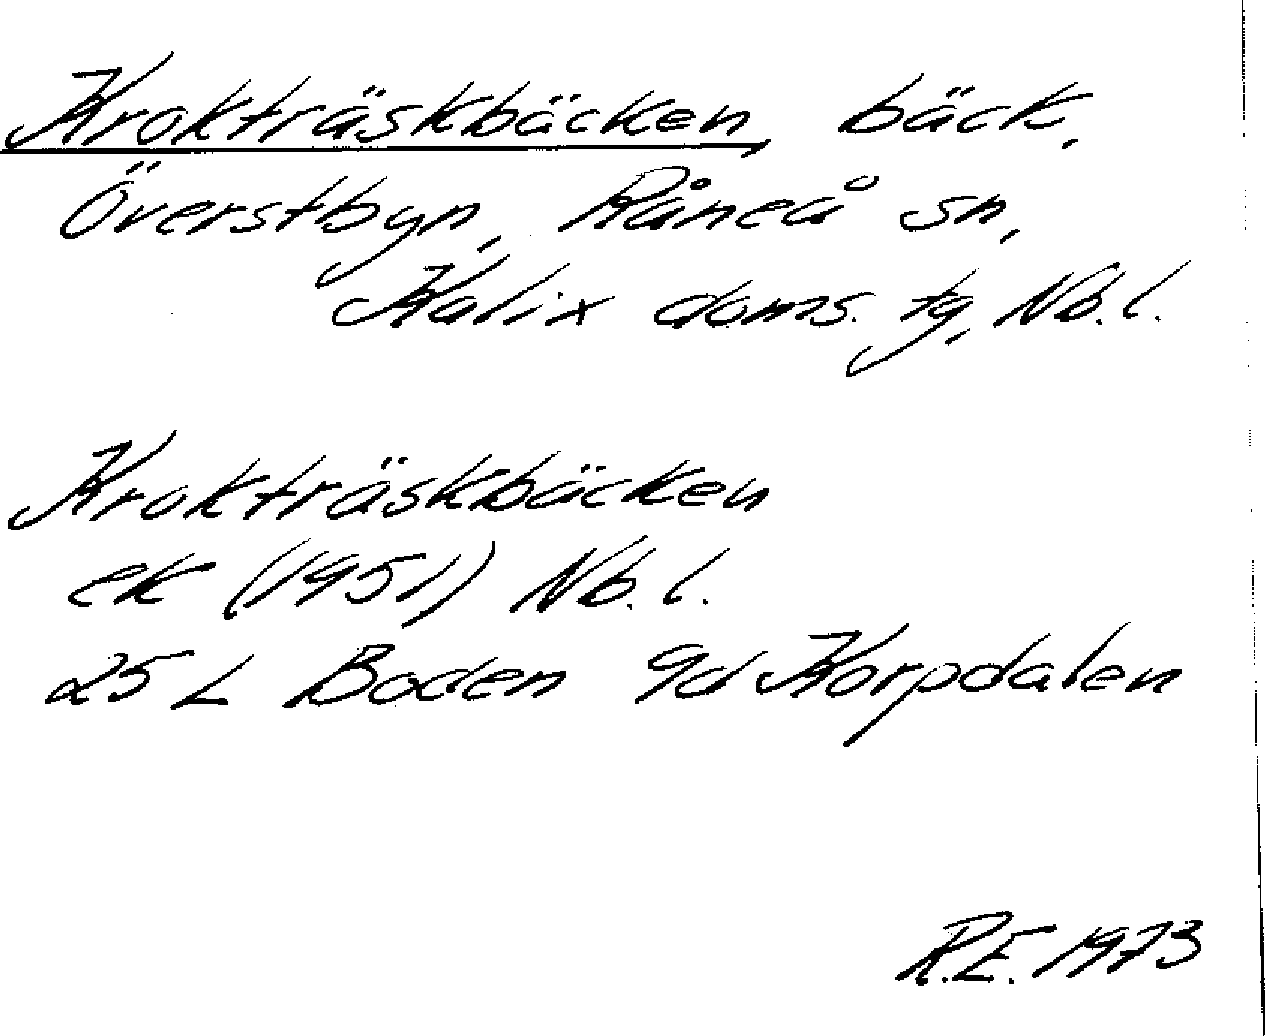 Krokträskbäcken, bäck,
Överstbyn, Råneå sn,
Kalix doms. tg, Nb.l.
Krokträskbäcken
ek (1951) Nb.l.
25 L Boden 9d Korpdalen
R.E. 1973